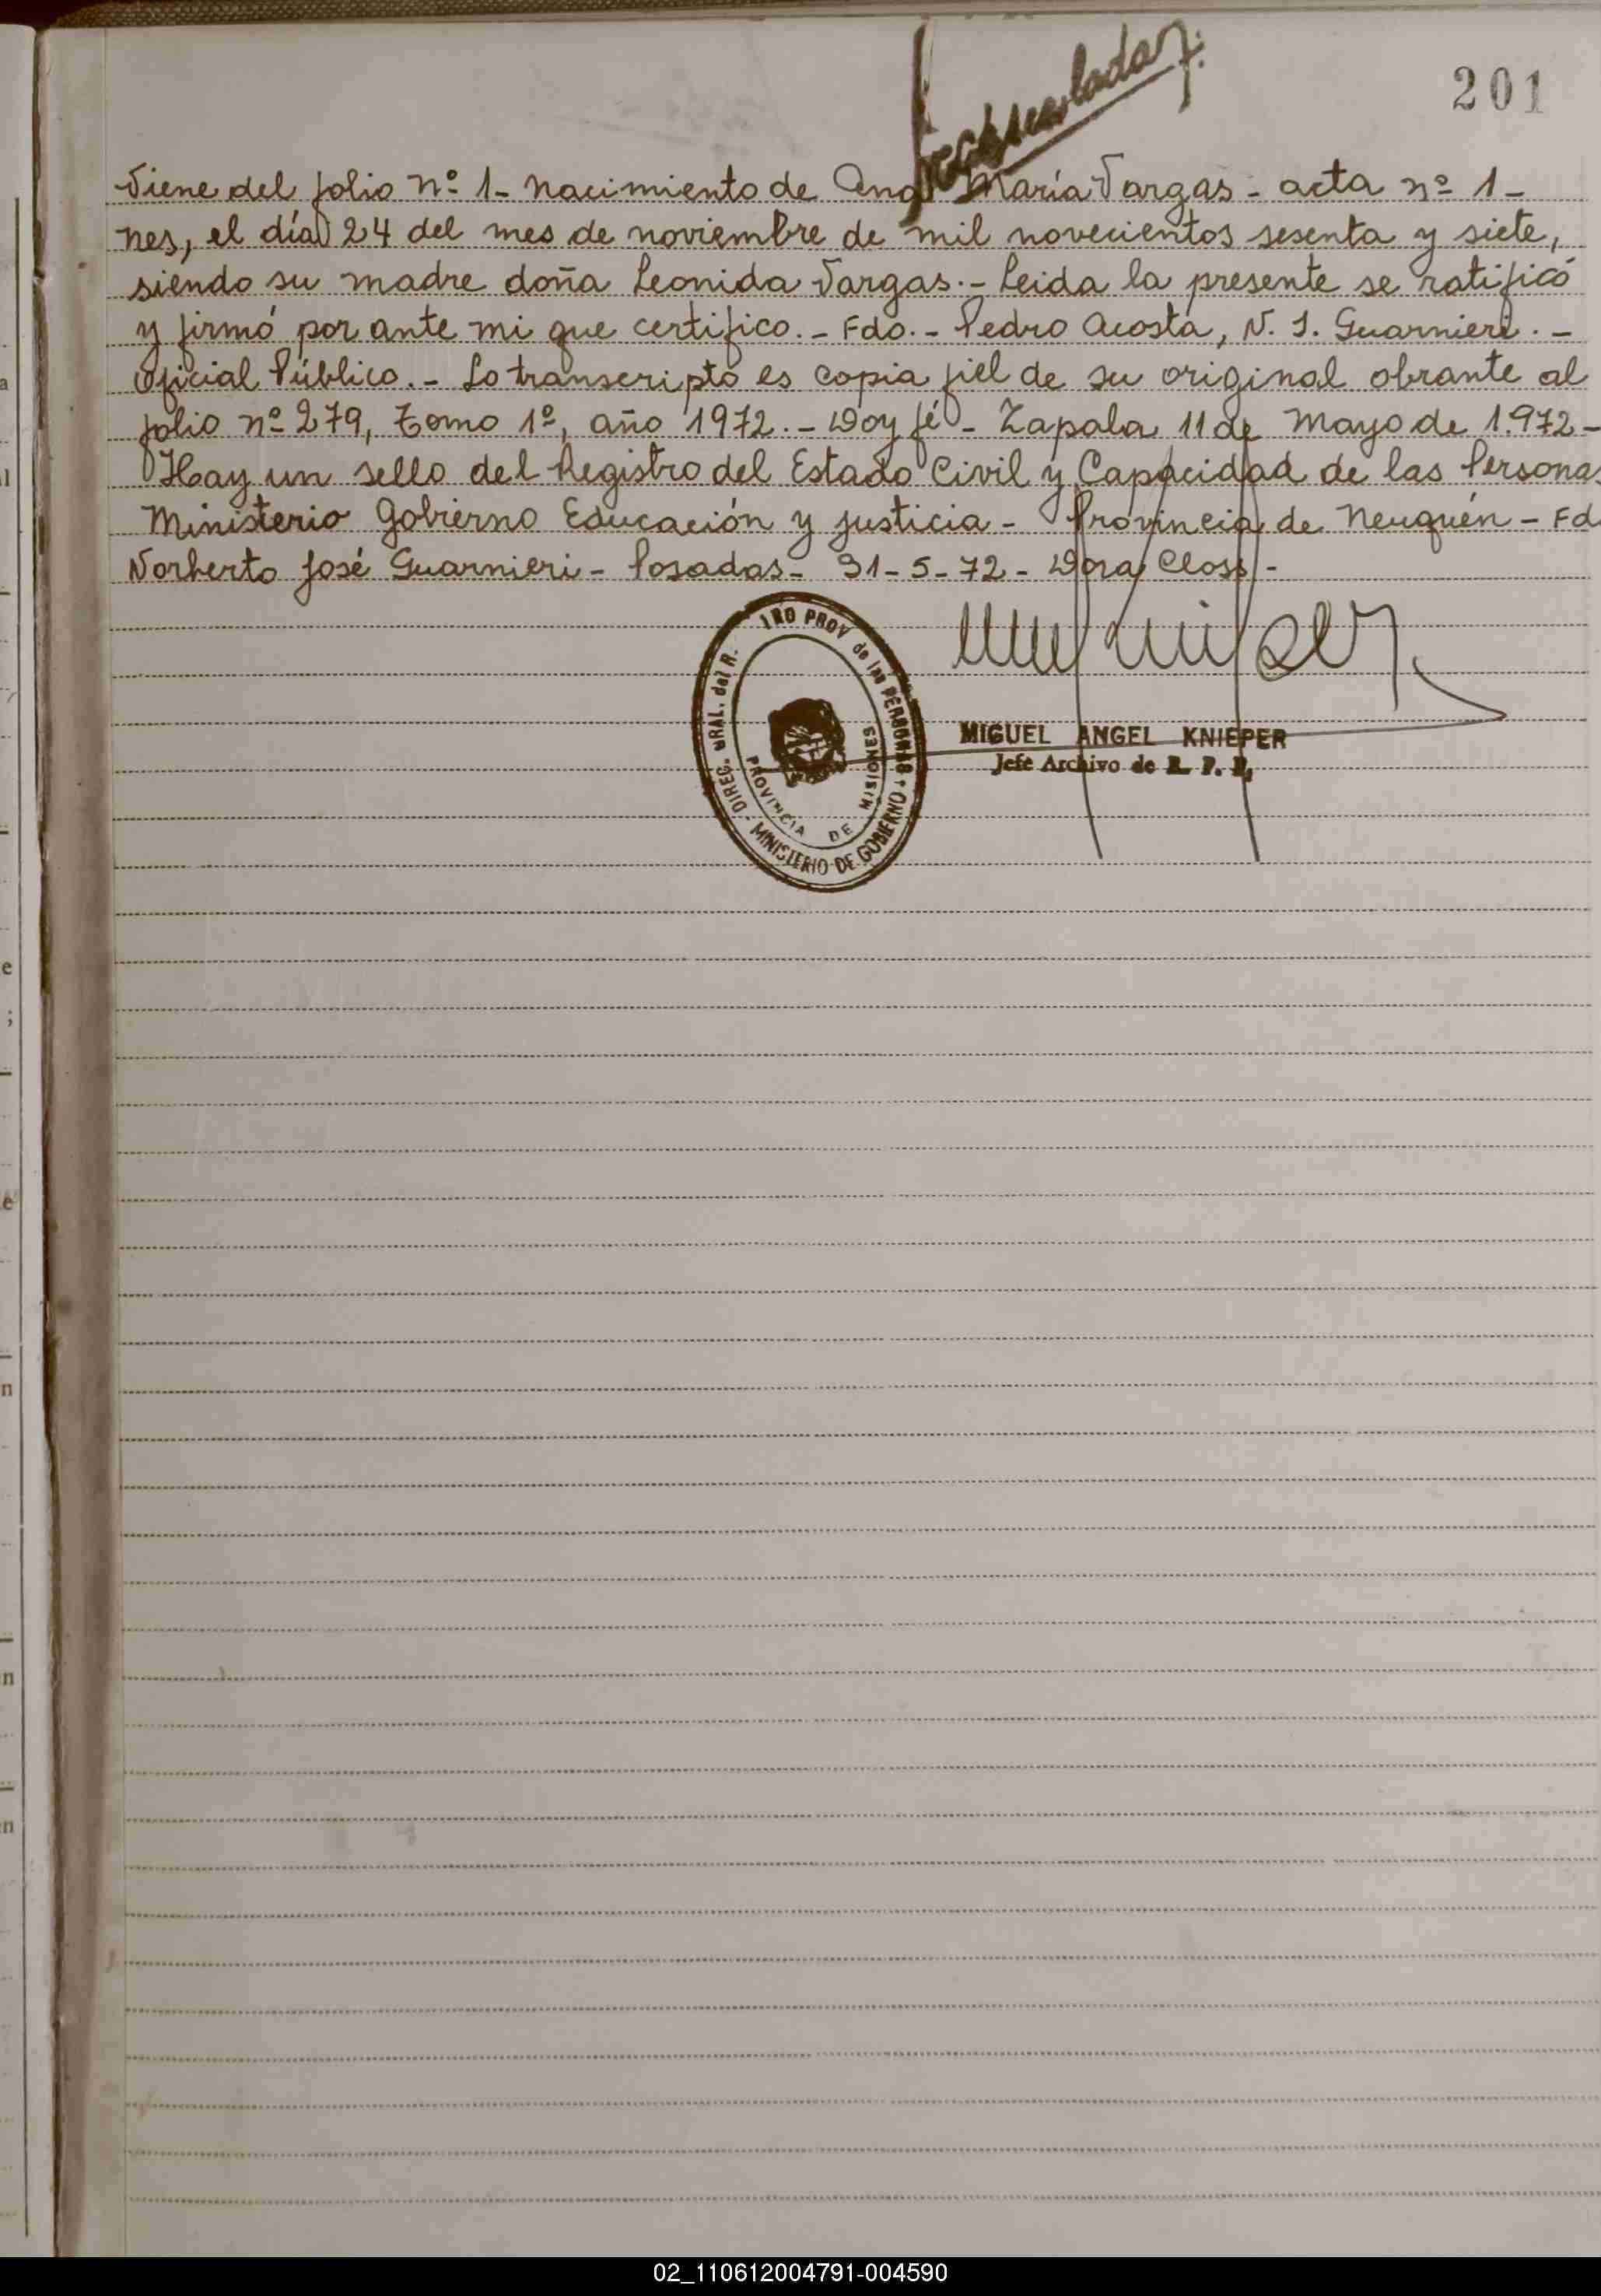 201
Viene del folio nº 1- Nacimiento de Ana María Vargas - acta nº 1-
nes, el día 24 del mes de noviembre de mil novecientos sesenta y siete,
siendo su madre doña Leonida Vargas.- Leida la presente se ratificó
y firmó por ante mi que certifico.- Fdo.- Pedro Acosta, N. J. Guarnieri.-
Oficial Público.- Lo transcripto es copia fiel de su original obrante al
folio nº 279, Tomo 1º, año 1972.- Doy fé- Zapala 11 de Mayo de 1.972-
Hay un sello del Registro del Estado Civil y Capacidad de las Personas
Ministerio Gobierno Educación y Justicia - Provincia de Neuquén - Fd
Norberto José Guarnieri - Posadas - 31-5-72 - Dora Closs -
DIREC. GRAL. del R. PROV de las PERSONAS
MINISTERIO DE GOBIERNO
PROVINCIA DE MISIONES
MIGUEL ANGEL KNIEPER
Jefe Archivo de R. P. P.
02_110612004791-004590